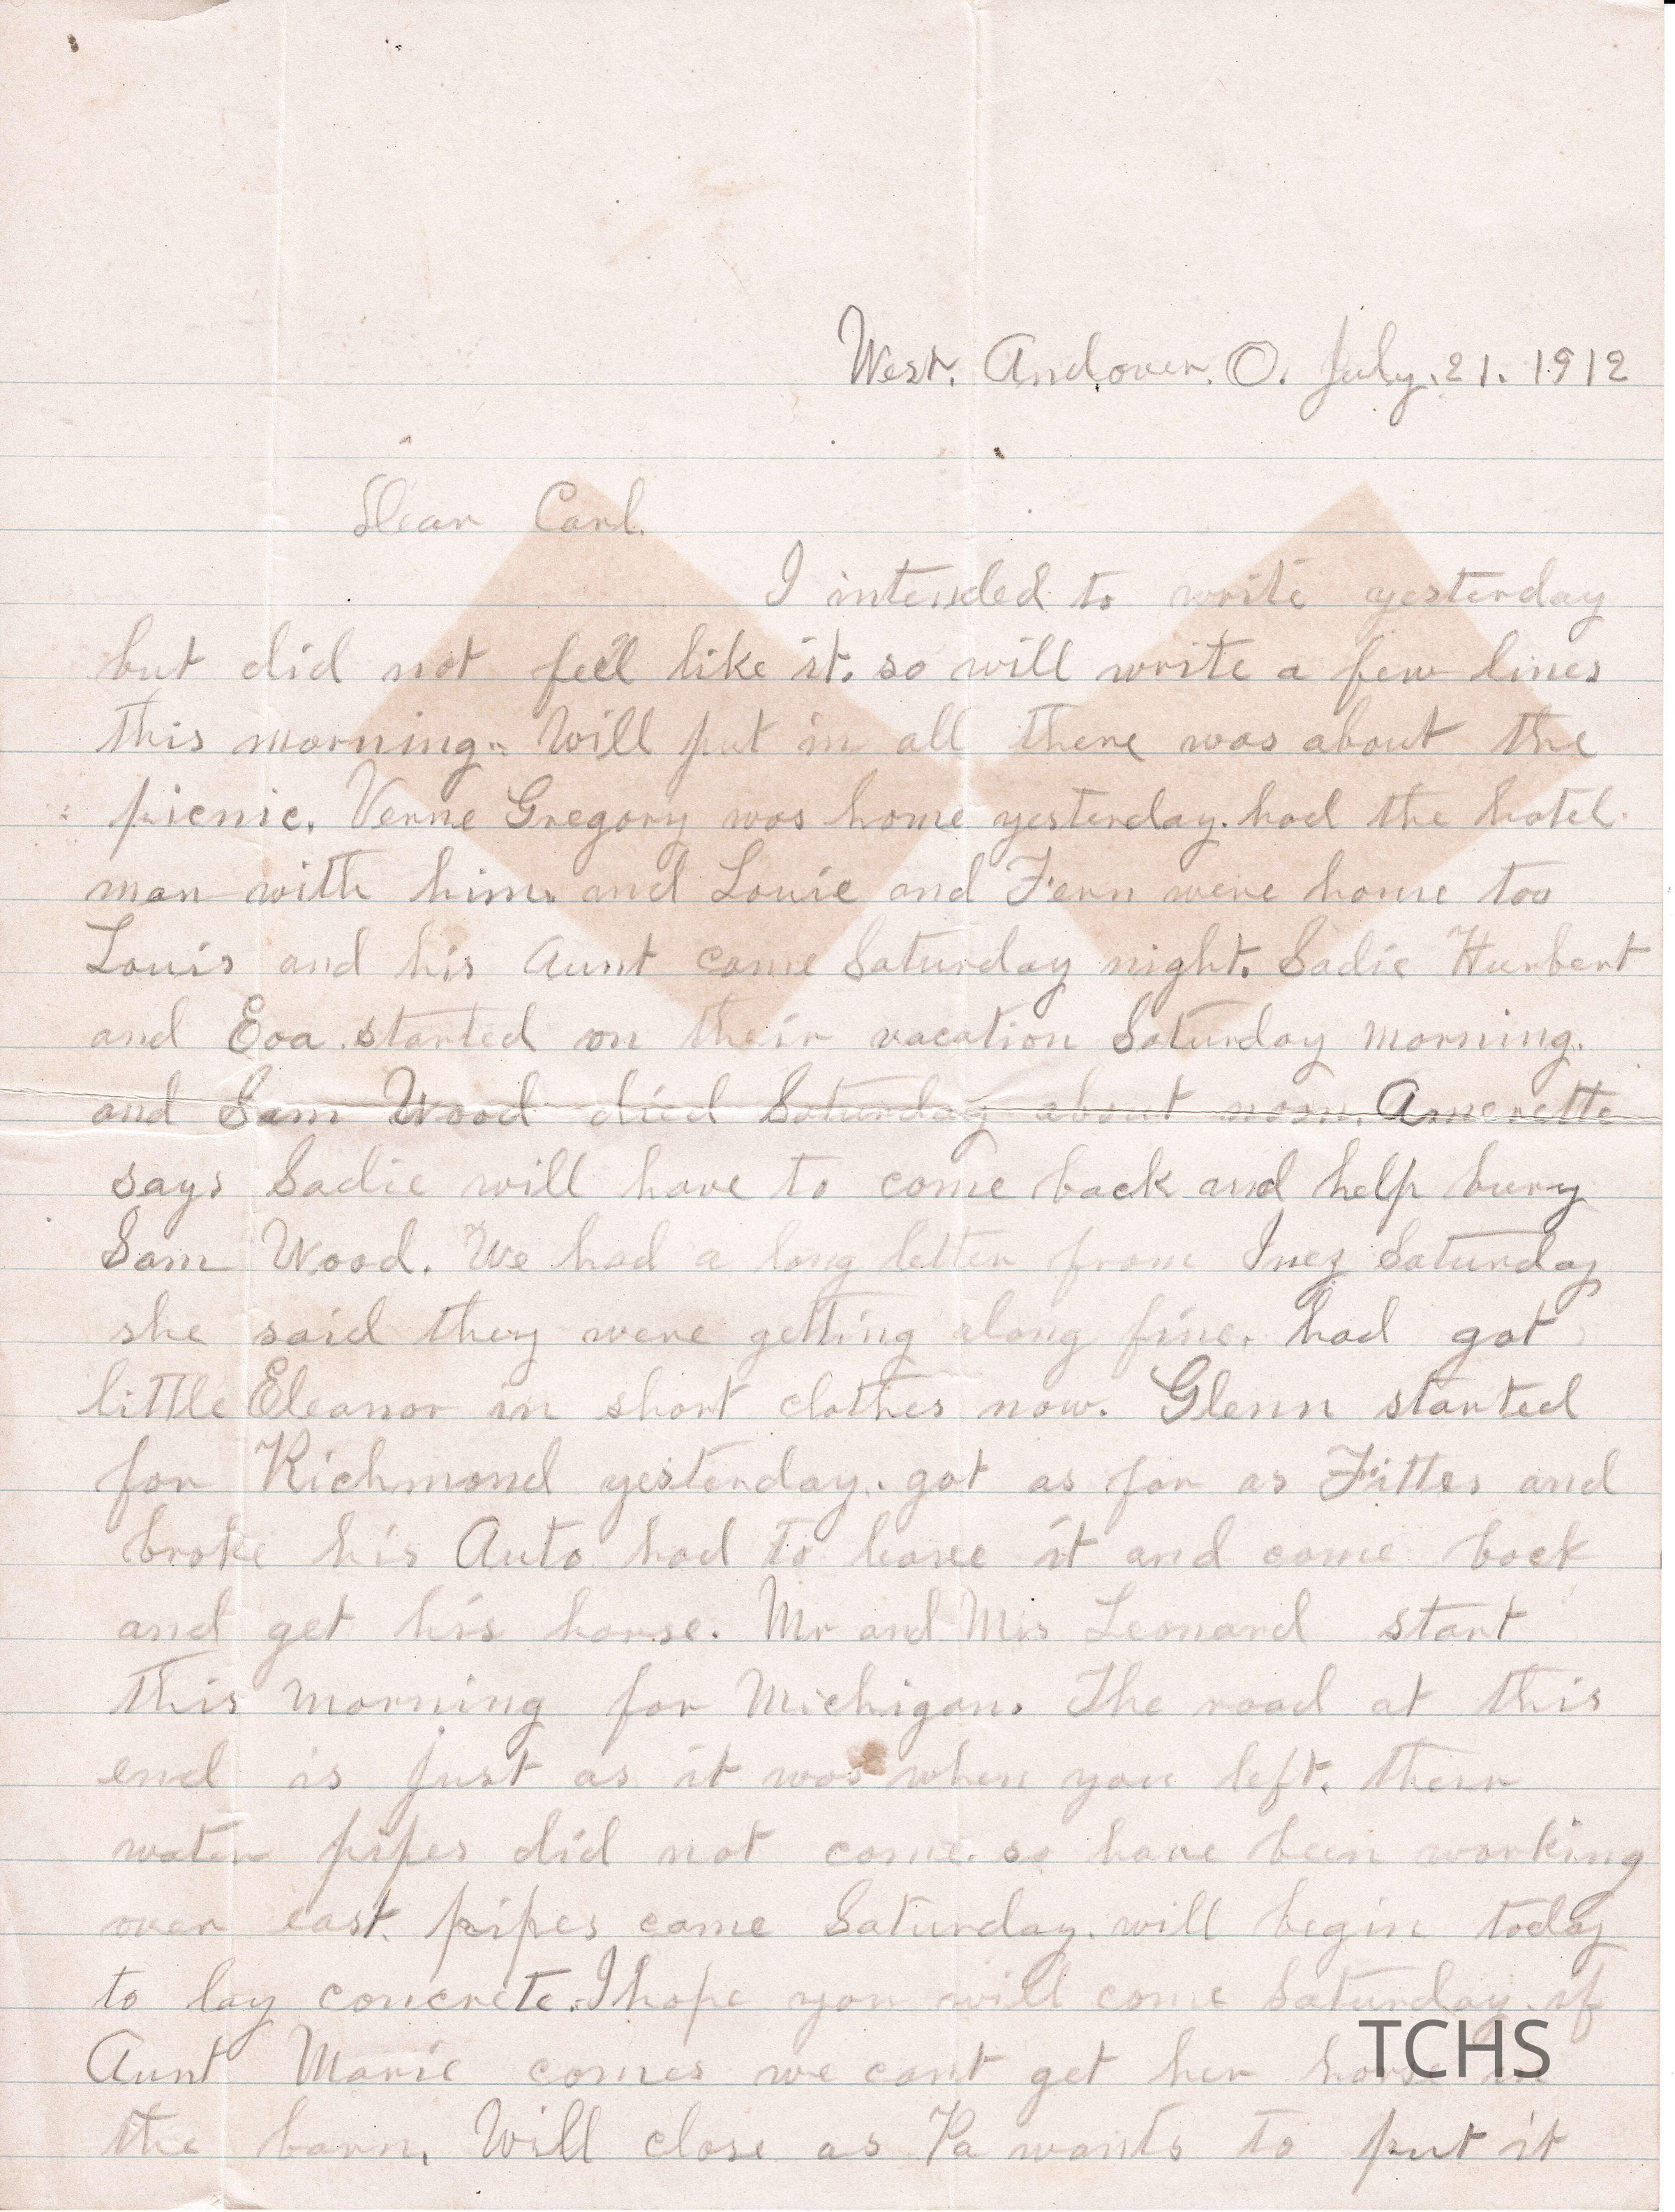 West. Andover. O. July. 21. 1912
Dear Carl.
I intended to write yesterday
but did not feel like it. so will write a few lines
this morning. Will put in all there was about the
picnic. Verne Gregory was home yesterday. had the hotel
man with him. and Louie and Fern were home too
Louis and his Aunt come Saturday night. Sadie Hurbert
and Eva started on their vacation Saturday morning.
and Sam Wood died Saturday about noon. Amerette
says Sadie will have to come back and help bury
Sam Wood. We had a long letter from Inez Saturday
she said they were getting along fine. had got
little Eleanor in short clothes now. Glenn started
for Richmond yesterday. got as far as Fittes and
broke his Auto had to leave it and come back
and get his horse. Mr and Mrs Leonard start
this morning for Michigan. The road at this
end is just as it was when you left. their
water pipes did not come. so have been working
over east. pipes came Saturday. will begin today
to lay concrete. I hope you will come Saturday. if
Aunt Marie comes we cant get her horse in
the barn. Will close as Pa wants to put it
TCHS